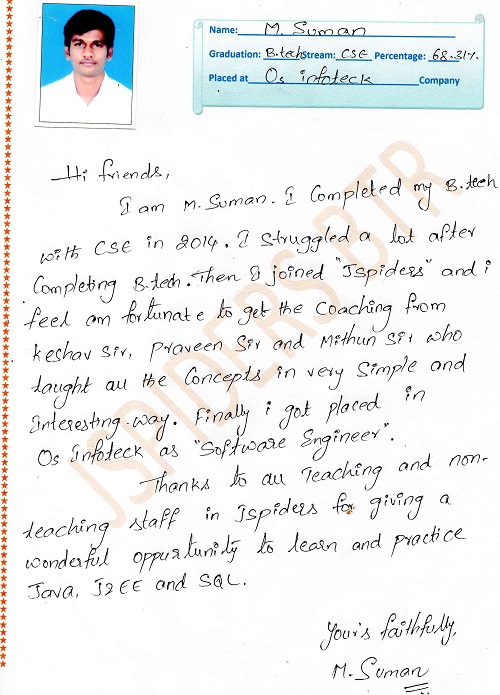 Name: M. Suman
Graduation: B.tech Stream: CSE Percentage: 68.31%
Placed at Os infoteck Company
Hi friends,
I am M. Suman. I Completed my B.tech
with CSE in 2014. I struggled a lot after
Completing B.tech. Then I joined "Jspiders" and i
feel am fortunate to get the Coaching from
Keshav Sir, Praveen Sir and Mithun Sir who
taught all the Concepts in very Simple and
Interesting-way. Finally i got placed in
Os Infoteck as "Software Engineer".
Thanks to all Teaching and non-
teaching staff in Jspiders for giving a
wonderful oppurtunity to learn and practice
Java, J2EE and SQL.
Your's faithfully,
M. Suman
JSPIDERS BTR